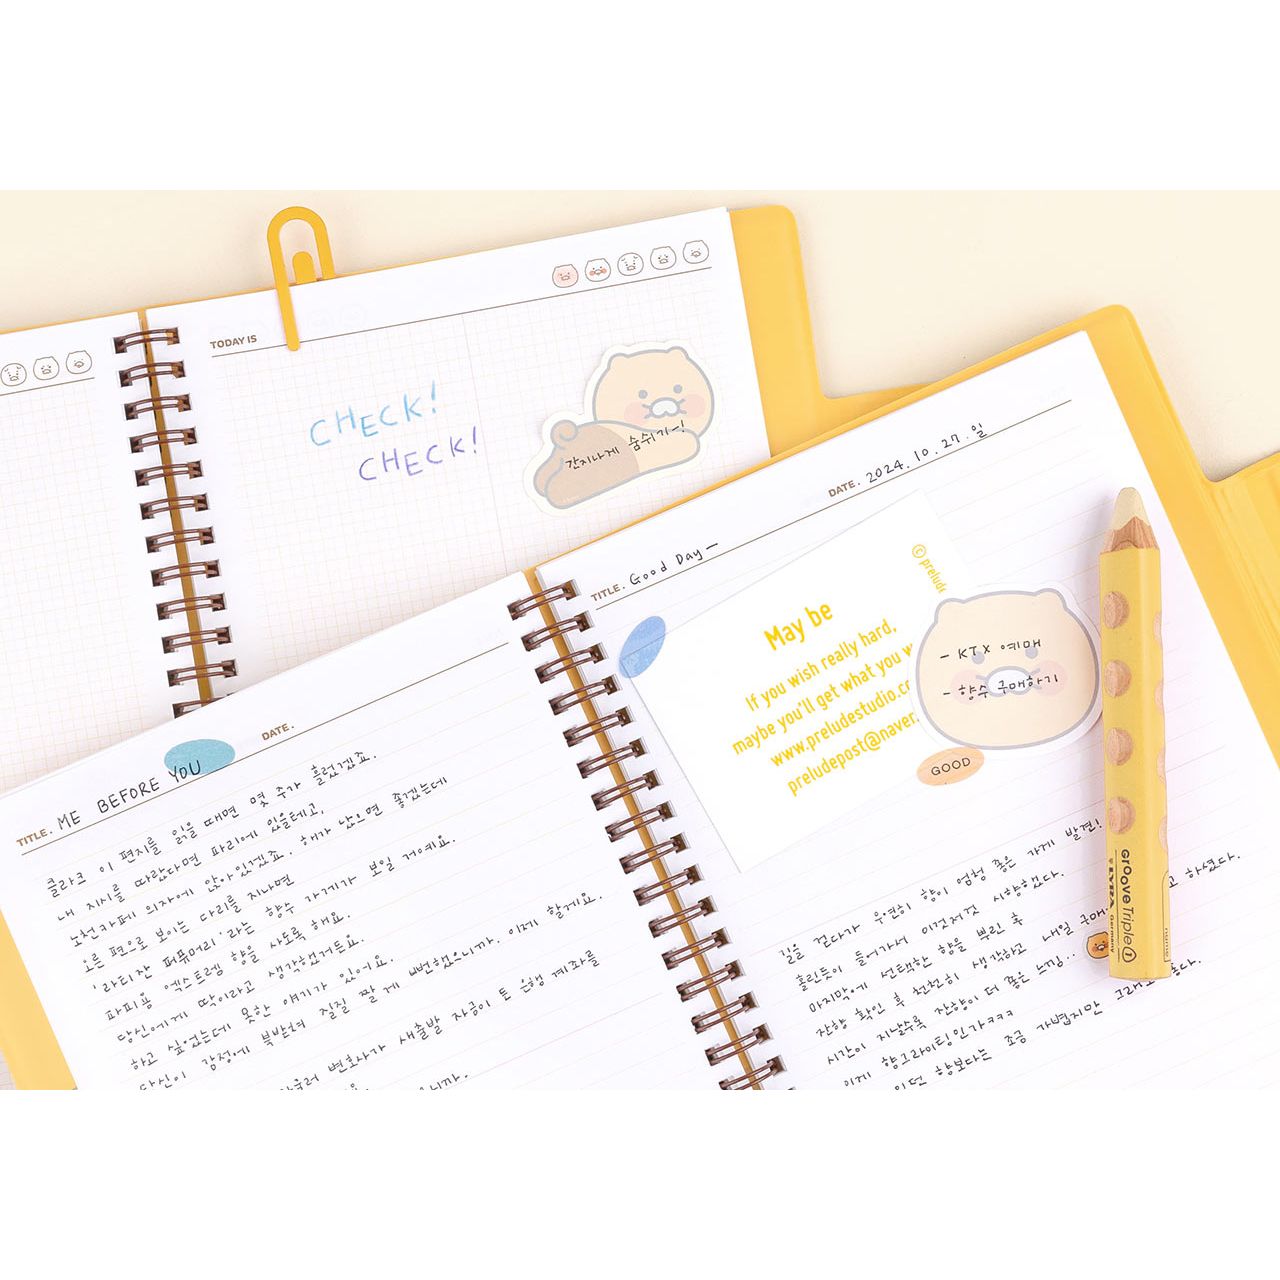 TODAY IS
CHECK!
CHECK!
간지나게 숨쉬기-!
TITLE. ME BEFORE YOU
DATE.
클라크 이 편지를 읽을 때면 몇 주가 흘렀겠죠.
내 지시를 따랐다면 파리에 있을테고,
노천카페 의자에 앉아있겠죠. 해가 났으면 좋겠는데
오른 편으로 보이는 다리를 지나면
'라티잔 퍼퓨머리'라는 향수 가게가 보일 거예요.
파피용 엑스트렘 향을 사도록 해요.
당신에게 딱이라고 생각했거든요.
하고 싶었는데 못한 얘기가 있어요.
당신이 감정에 북받쳐 질질 짤 게 뻔했으니까. 이제 할게요.
변호사가 새출발 자금이 든 은행 계좌를
니까.
TITLE. Good Day—
DATE. 2024. 10. 27. 일
© prelude
May be
If you wish really hard,
maybe you'll get what you w
www.preludestudio.co
preludepost@naver.
- KTX 예매
- 향수 구매하기
GOOD
길을 걷다가 우연히 향이 엄청 좋은 가게 발견!
홀린듯이 들어가서 이것저것 시향했다.
마지막에 선택한 향을 뿌린 후
잔향 확인 후 천천히 생각하고 내일 구매 고 하셨다.
시간이 지날수록 잔향이 더 좋은 느낌..
이게 향그라이팅인가ㅋㅋㅋ
향보다는 조금 가볍지만 좋다.
GROOVE Triple 1
LYRA Germany